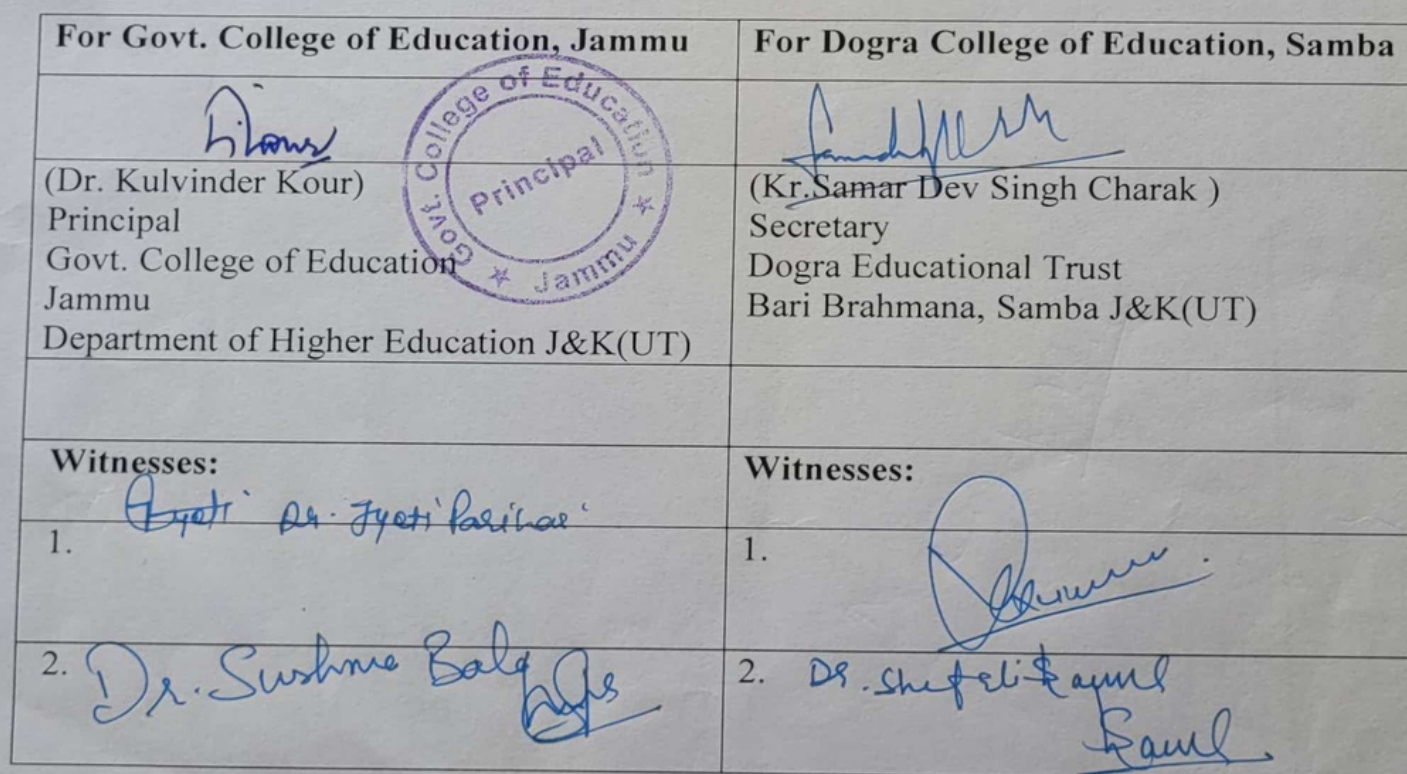 For Govt. College of Education, Jammu
For Dogra College of Education, Samba
Govt. College of Education
Jammu
Principal
(Dr. Kulvinder Kour)
Principal
Govt. College of Education
Jammu
Department of Higher Education J&K(UT)
(Kr.Samar Dev Singh Charak )
Secretary
Dogra Educational Trust
Bari Brahmana, Samba J&K(UT)
Witnesses:
Jyoti Dr. Jyoti Parihar
1.
2. Dr. Sushma Bala
Witnesses:
1.
2. Dr. Shefali Kaul
Kaul